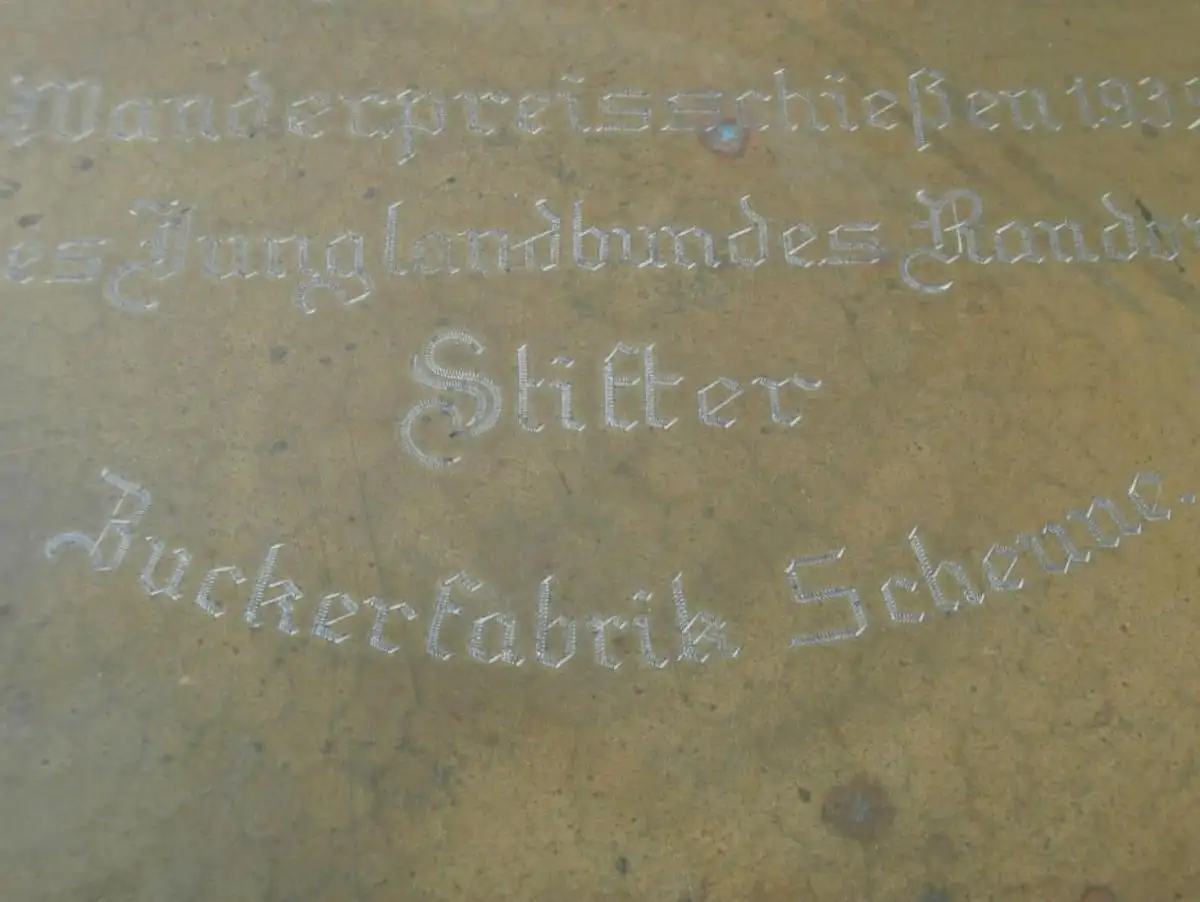 Wanderpreisschießen 193
es Junglandbundes Rando
Stifter
Zuckerfabrik Scheune.